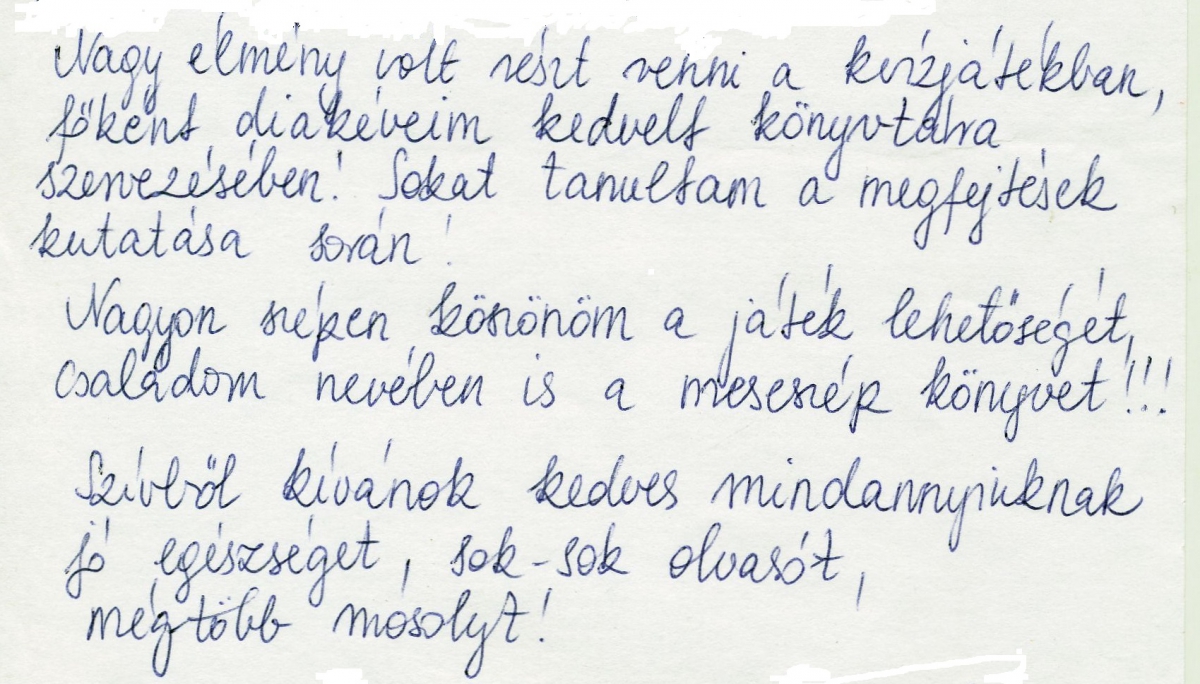 Nagy élmény volt részt venni a kvízjátékban,
főként diákéveim kedvelt könyvtára
szervezésében! Sokat tanultam a megfejtések
kutatása során!
Nagyon szépen köszönöm a játék lehetőségét,
családom nevében is a meseszép könyvet!!!
Szívből kívánok kedves mindannyiuknak
jó egészséget, sok-sok olvasót,
mégtöbb mosolyt!